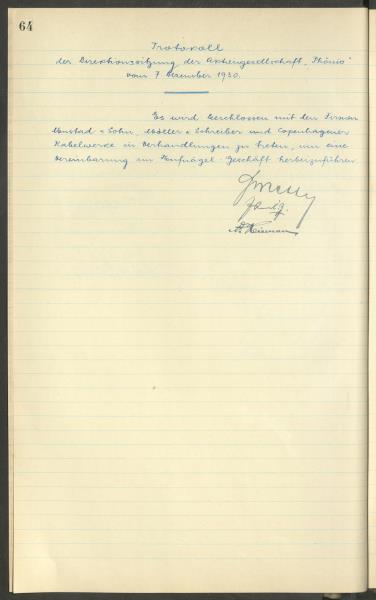 64
Protokoll
der Direktionssitzung der Aktiengesellschaft „Phönix“
vom 7. Dezember 1930.
Es wird beschlossen mit den Firmen
Mustad & Sohn, Möller & Schreiber und Copenhagener
Kabelwerke in Verhandlungen zu treten, um eine
Vereinbarung im Hufnägel-Geschäft herbeizuführen.